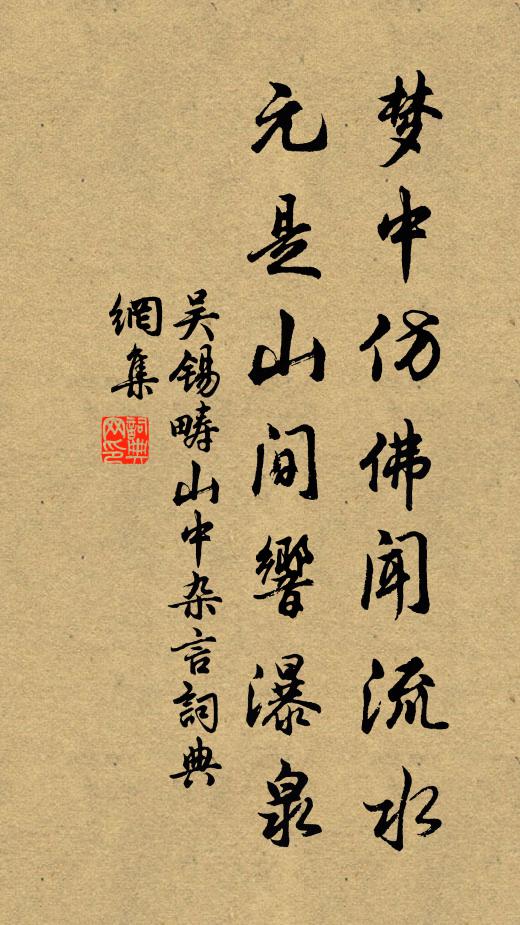 梦中仿佛闻流水
元是山间響瀑泉
吴锡畴山中杂言詞典
網集
詞典
网印